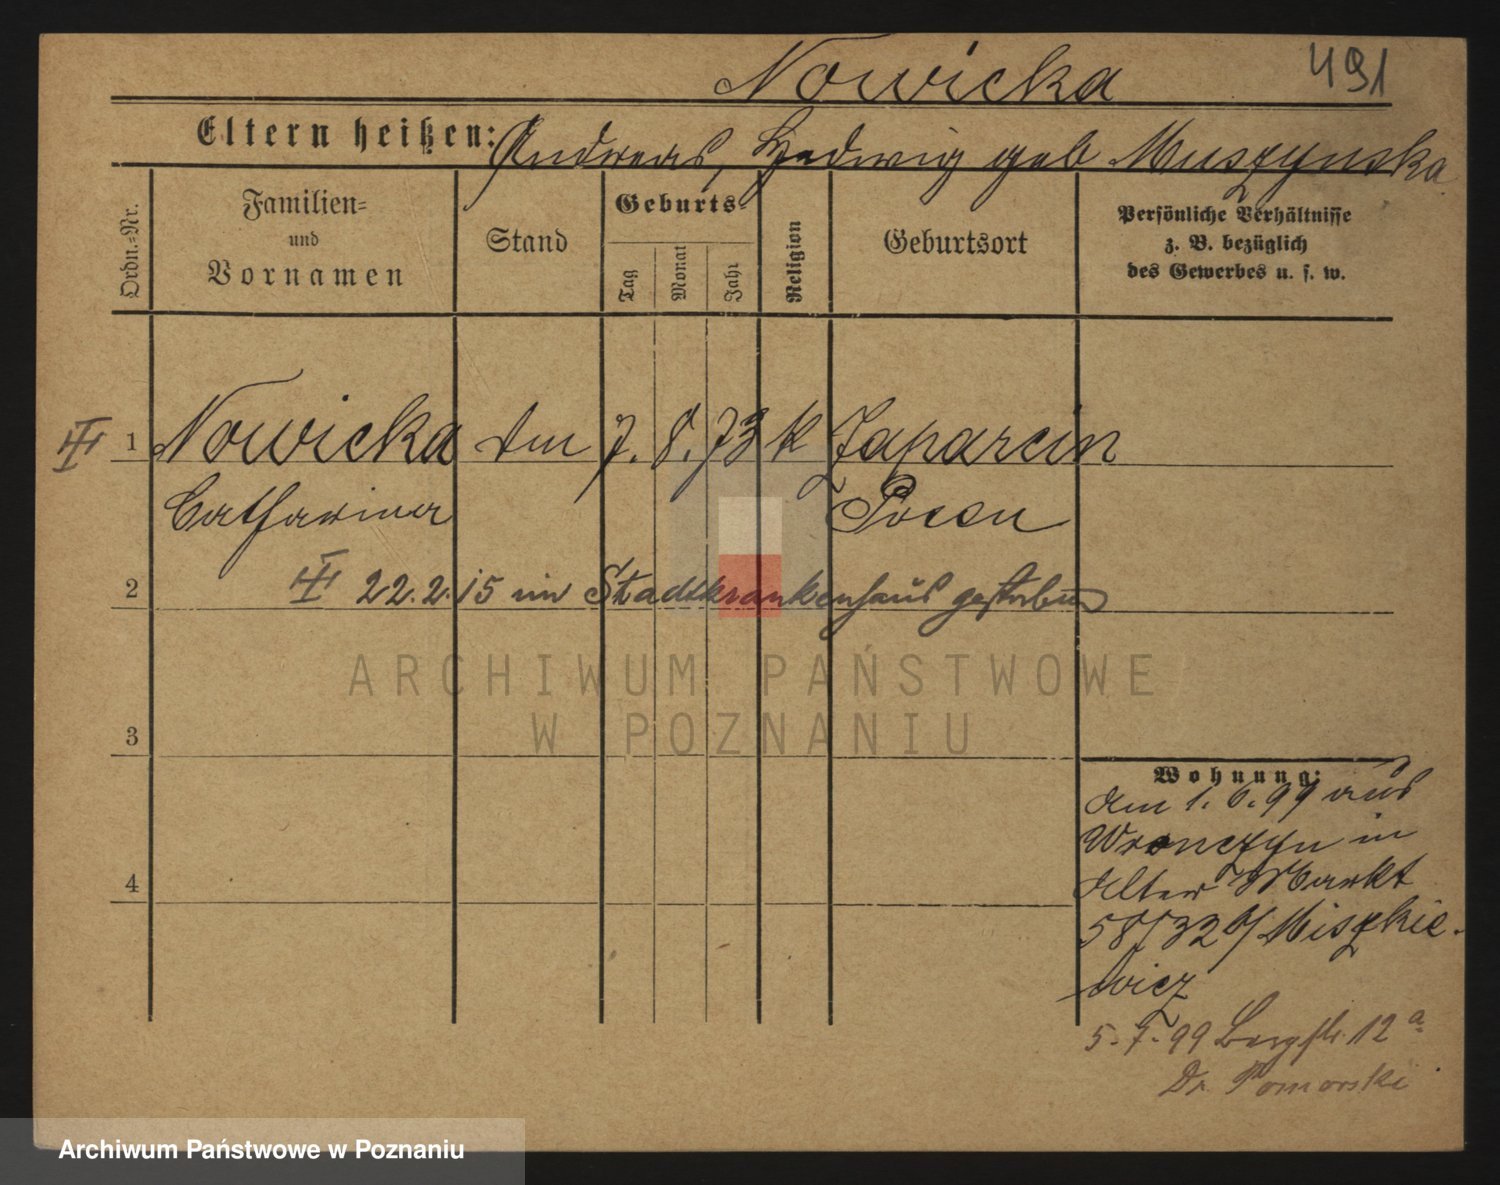 Nowicka 491
Eltern heißen: Andreas, Hedwig geb Muszynska
Ordn.=Nr.
Familien=
und
Vornamen
Stand
Geburts=
Tag
Monat
Jahr
Religion
Geburtsort
Persönliche Verhältnisse
z. B. bezüglich
des Gewerbes u. s. w.
1 Nowicka 7. 8. 73 k Zaparcin
Catharina Posen
2 22.2.15 im Stadtkrankenhaus gestorben
3
4
Wohnung:
Am 1. 6. 99 aus
Wronczyn in
Alter Markt
58/32 b/ Miszkie-
wicz
5. 7. 99 Bergstr. 12 a
Dr. Pomorski
ARCHIWUM PAŃSTWOWE
W POZNANIU
Archiwum Państwowe w Poznaniu